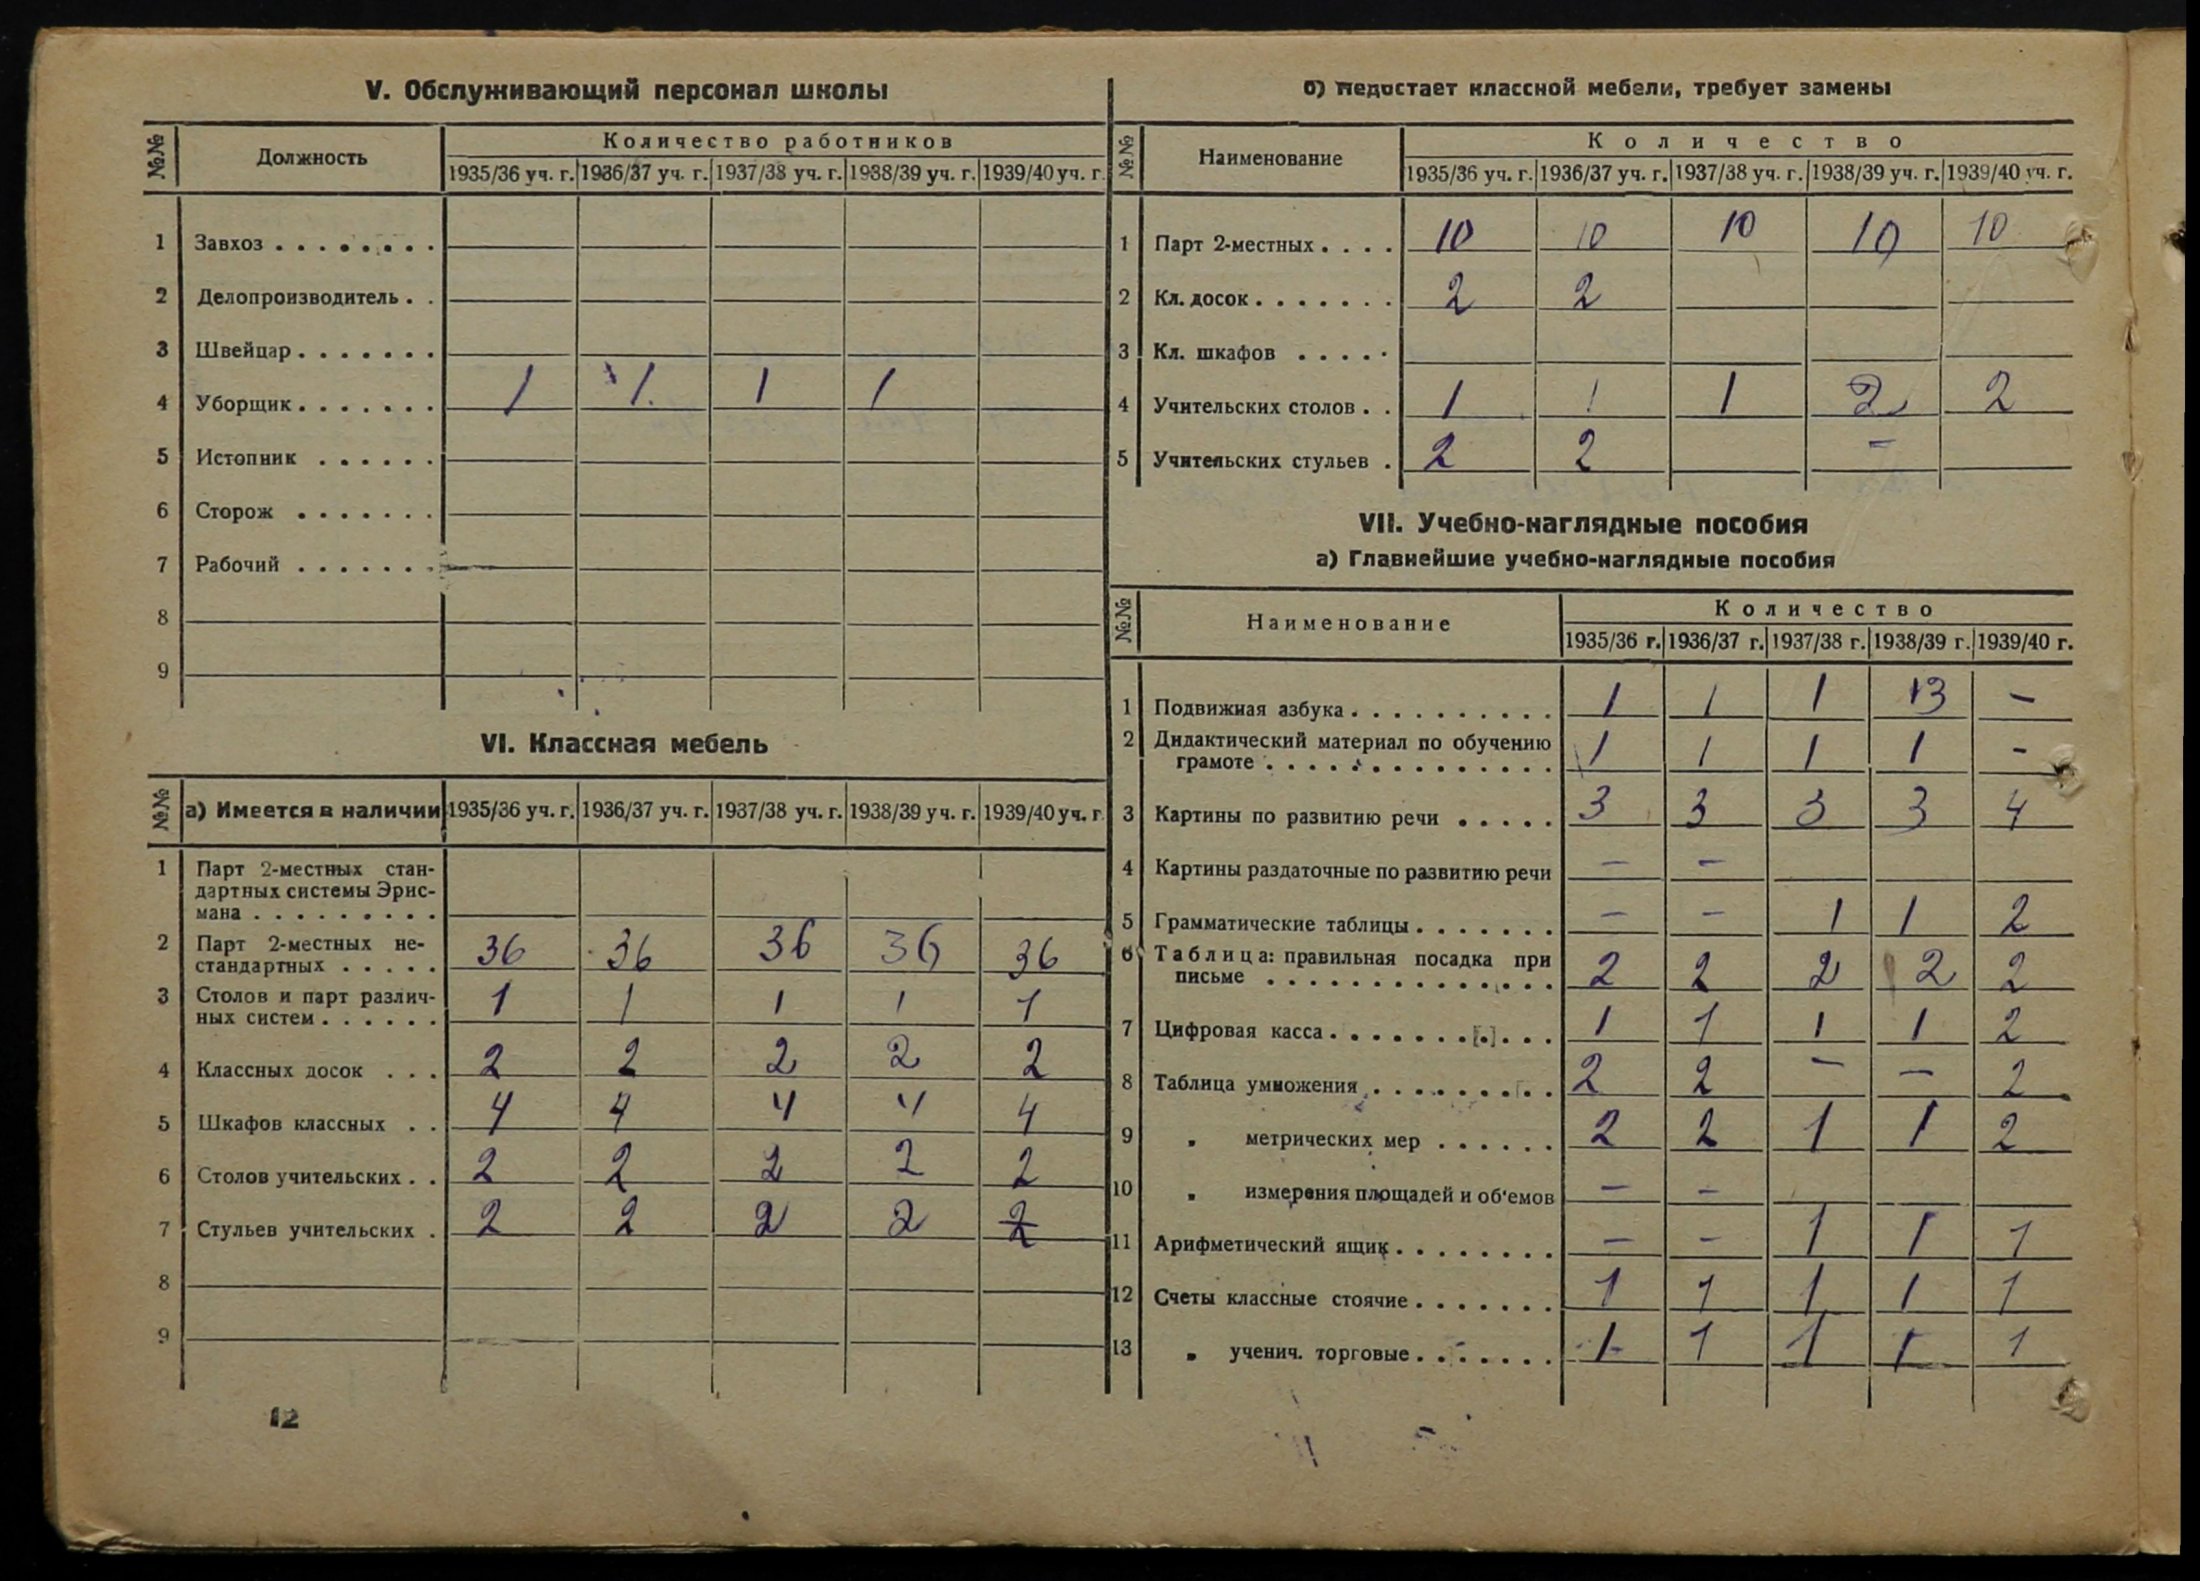 V. Обслуживающий персонал школы
№№ Должность Количество работников
1935/36 уч. г. 1936/37 уч. г. 1937/38 уч. г. 1938/39 уч. г. 1939/40 уч. г.
1 Завхоз . . . . . . . .
2 Делопроизводитель . .
3 Швейцар . . . . . . .
4 Уборщик . . . . . . . 1 1 1 1
5 Истопник . . . . . .
6 Сторож . . . . . . .
7 Рабочий . . . . . . .
8
9
VI. Классная мебель
№№ а) Имеется в наличии 1935/36 уч. г. 1936/37 уч. г. 1937/38 уч. г. 1938/39 уч. г. 1939/40 уч. г.
1 Парт 2-местных стан-
дартных системы Эрис-
мана . . . . . . . . .
2 Парт 2-местных не-
стандартных . . . . . 36 36 36 36 36
3 Столов и парт различ-
ных систем . . . . . . 1 1 1 1 1
4 Классных досок . . . 2 2 2 2 2
5 Шкафов классных . . 4 4 4 4 4
6 Столов учительских . . 2 2 2 2 2
7 Стульев учительских . 2 2 2 2 2
8
9
12
б) Недостает классной мебели, требует замены
№№ Наименование Количество
1935/36 уч. г. 1936/37 уч. г. 1937/38 уч. г. 1938/39 уч. г. 1939/40 уч. г.
1 Парт 2-местных . . . . 10 10 10 10 10
2 Кл. досок . . . . . . . 2 2
3 Кл. шкафов . . . . .
4 Учительских столов . . 1 1 1 2 2
5 Учительских стульев . 2 2 –
VII. Учебно-наглядные пособия
а) Главнейшие учебно-наглядные пособия
№№ Наименование Количество
1935/36 г. 1936/37 г. 1937/38 г. 1938/39 г. 1939/40 г.
1 Подвижная азбука . . . . . . . . . . 1 1 1 13 –
2 Дидактический материал по обучению
грамоте . . . . . . . . . . . . . . 1 1 1 1 –
3 Картины по развитию речи . . . . . 3 3 3 3 4
4 Картины раздаточные по развитию речи – –
5 Грамматические таблицы . . . . . . . – – 1 1 2
6 Таблица: правильная посадка при
письме . . . . . . . . . . . . . . 2 2 2 2 2
7 Цифровая касса . . . . . . . [.] . . . 1 1 1 1 2
8 Таблица умножения . . . . . . . . . 2 2 – – 2
9 „ метрических мер . . . . . . 2 2 1 1 2
10 „ измерения площадей и об'емов – –
11 Арифметический ящик . . . . . . . . – – 1 1 1
12 Счеты классные стоячие . . . . . . . 1 1 1 1 1
13 „ ученич. торговые . . . . . . . 1 1 1 1 1